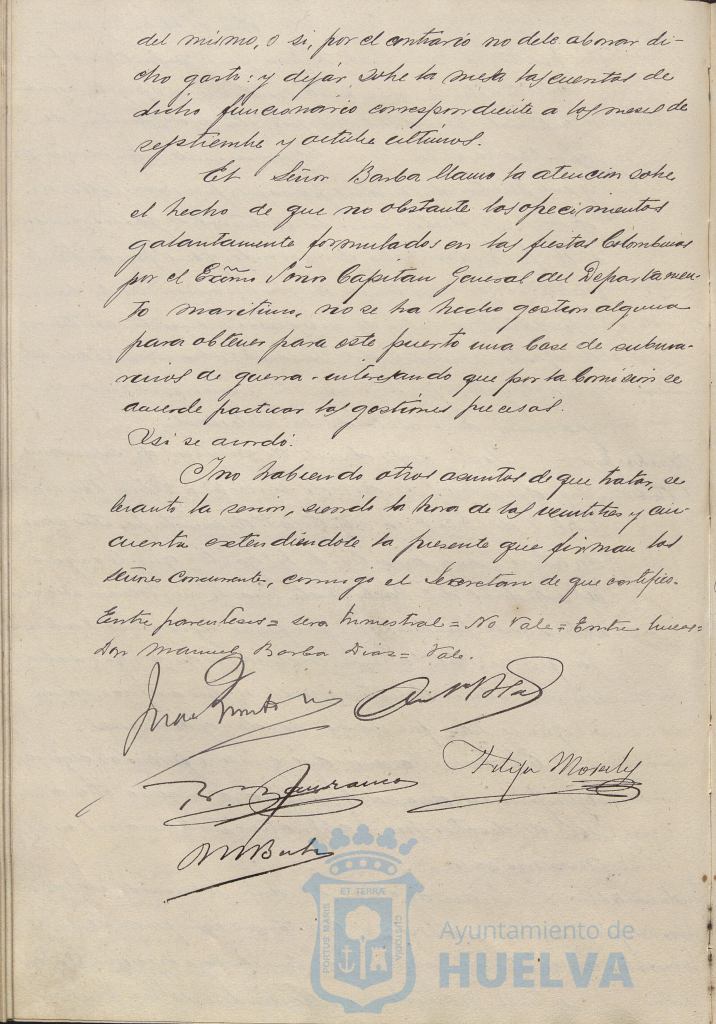 del mismo, o si, por el contrario no debe abonar di-
cho gasto: y dejar sobre la mesa las cuentas de
dicho funcionario correspondiente a los meses de
septiembre y octubre últimos.
El Señor Barba llamó la atención sobre
el hecho de que no obstante los ofrecimientos
galantamente formulados en las fiestas Colombinas
por el Excmo Señor Capitan General del Departamen-
to maritimo, no se ha hecho gestion alguna
para obtener para este puerto una base de subma-
rinos de guerra - interesando que por la Comision se
acuerde practicar las gestiones precisas.
Asi se acordó.
Y no habiendo otros asuntos de que tratar, se
levantó la sesion, siendo la hora de las veintitres y cin-
cuenta extendiéndose la presente que firman los
señores concurrentes, conmigo el Secretario de que certifico.
Entre parentesis = sera trimestral = No Vale = Entre lineas =
Don Manuel Barba Diaz = Vale.
Felipe Morales
M Barba
ET TERRÆ
PORTUS MARIS
CUSTODIA
Ayuntamiento de
HUELVA